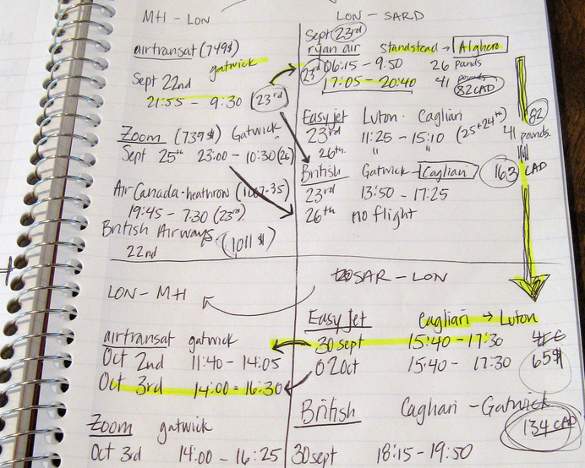 MH - LON
airtransat (749$)
gatwick
Sept 22nd
21:55 - 9:30 (23rd)
Zoom (739$) Gatwick
Sept 25th 23:00 - 10:30 (26)
Air Canada - heathrow
19:45 - 7:30 (23rd)
British Airways (1011$)
22nd
LON - SARD
Sept 23rd
ryan air Standstead → Alghero
23rd 06:15 - 9:50 26 pounds
17:05 - 20:40 41 pounds
82 CAD
Easy Jet Luton - Caglian
23rd 11:25 - 15:10 (25+24th)
26th " "
82
41 pounds
British Gatwick - Caglian 163 CAD
23rd 13:50 - 17:25
26th no flight
LON - MH
airtransat gatwick
Oct 2nd 11:40 - 14:05
Oct 3rd 14:00 - 16:30
Zoom gatwick
Oct 3rd 14:00 - 16:25
SAR - LON
Easy Jet Cagliari → Luton
30 sept 15:40 - 17:30
02 Oct 15:40 - 17:30
65$
British Cagliari - Gatwick
134 CAD
30 sept 18:15 - 19:50